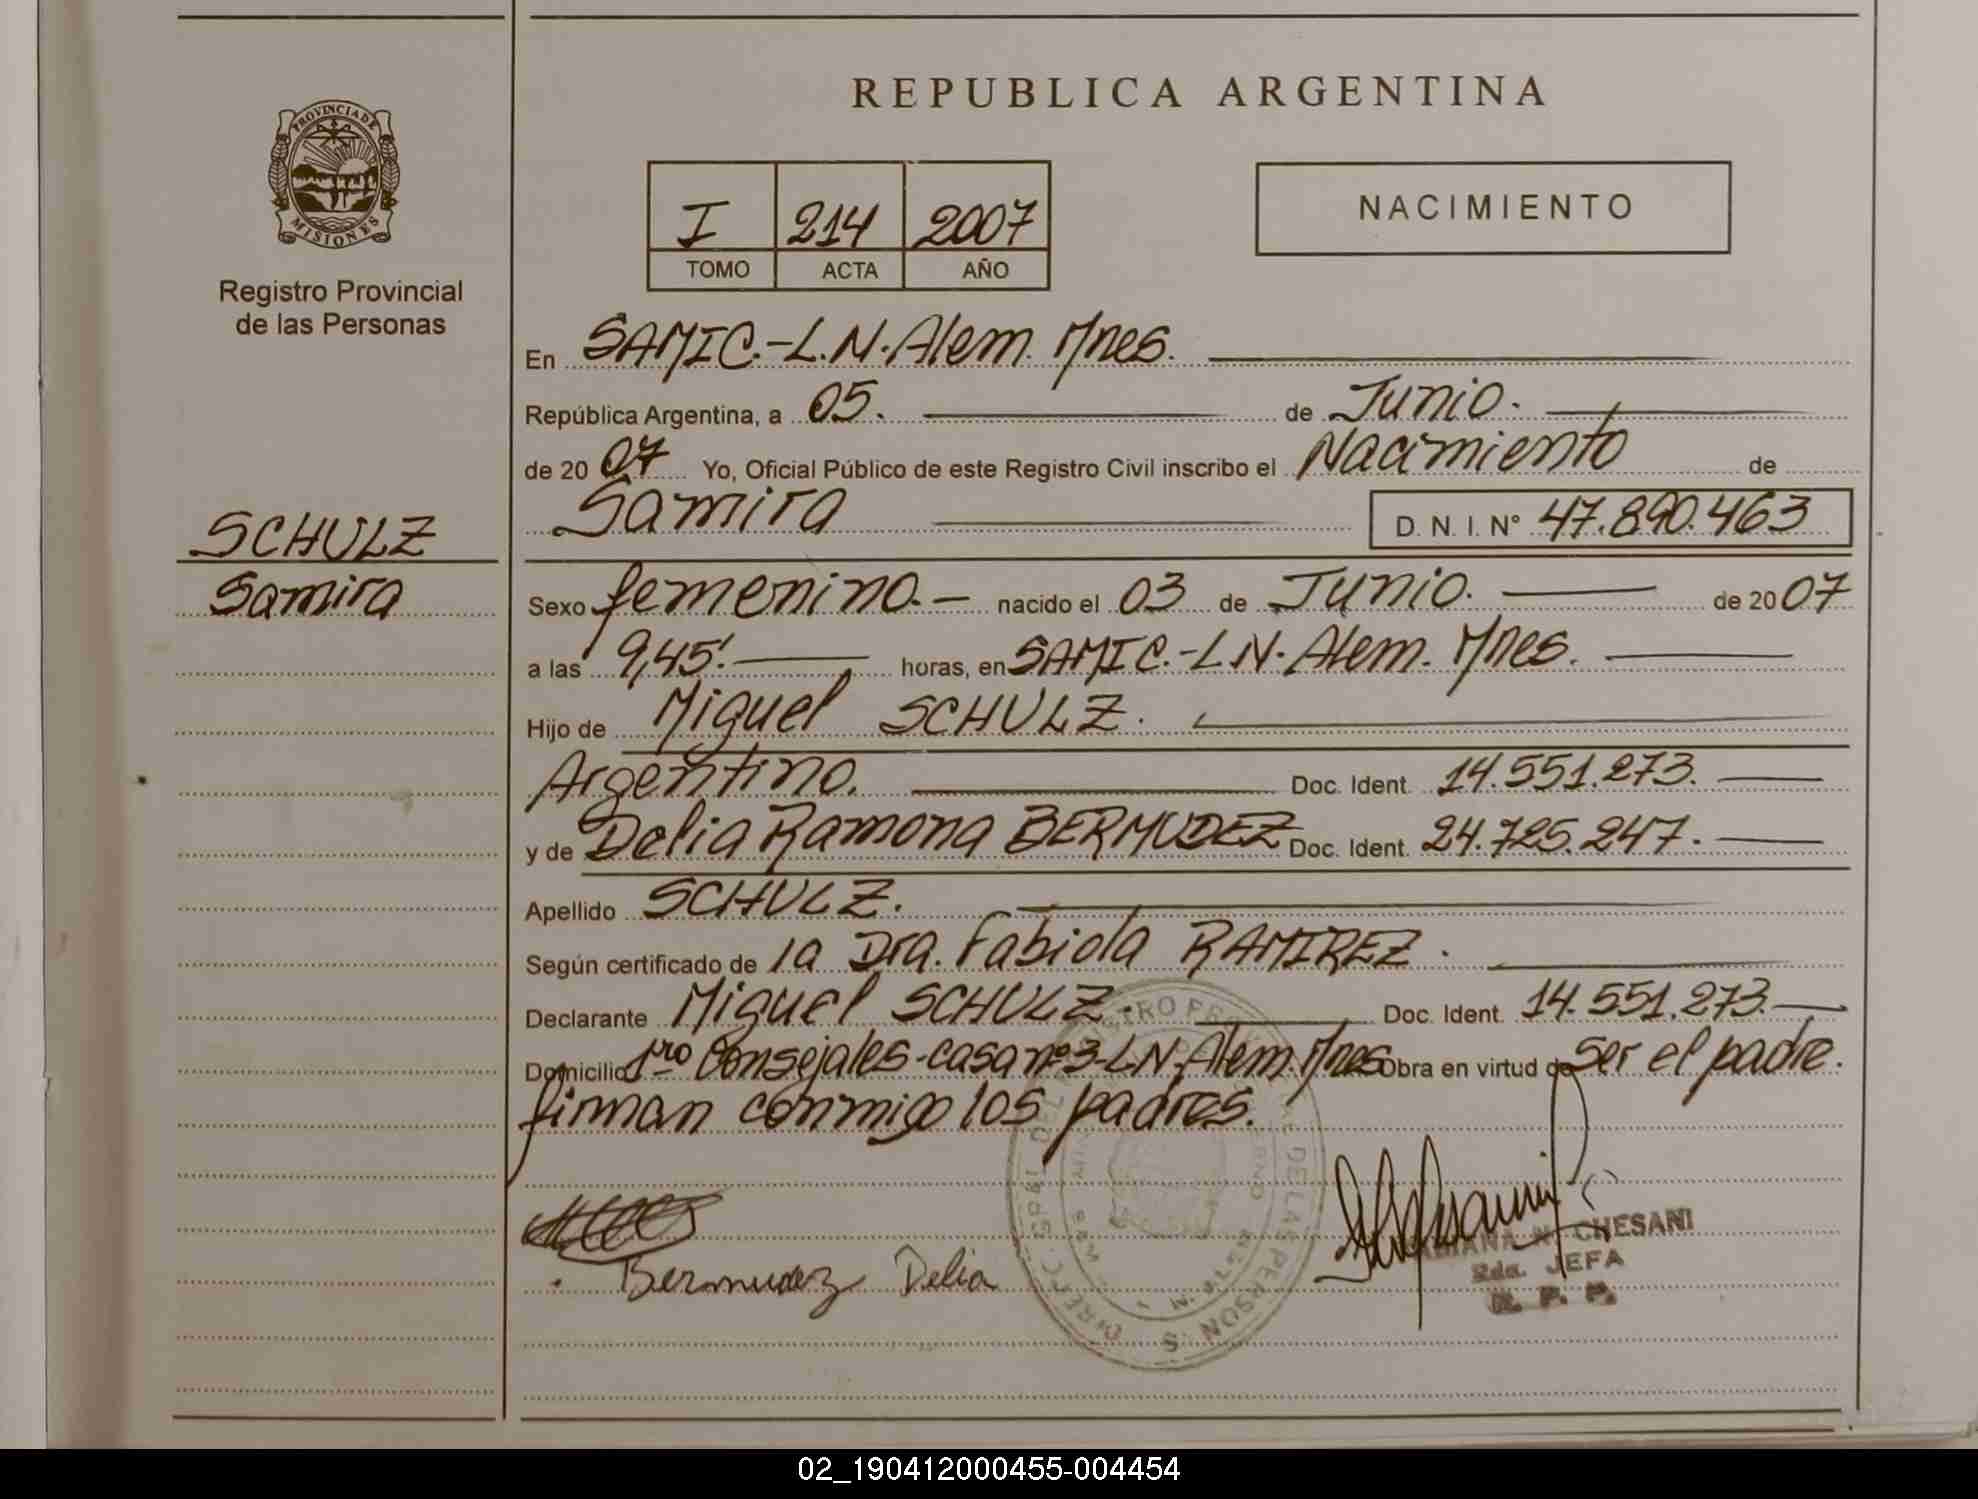 REPUBLICA ARGENTINA
PROVINCIA DE
MISIONES
Registro Provincial
de las Personas
I 214 2007
TOMO ACTA AÑO
NACIMIENTO
En SAMIC.-L.N.Alem. Mnes.
República Argentina, a 05. de Junio.
de 2007 Yo, Oficial Público de este Registro Civil inscribo el Nacimiento de
Samira D. N. I. N° 47.890.463
SCHULZ
Samira
Sexo femenino.- nacido el 03 de Junio. de 2007
a las 9,45'. horas, en SAMIC.-L.N.Alem. Mnes.
Hijo de Miguel SCHULZ.
Argentino. Doc. Ident. 14.551.273.
y de Delia Ramona BERMUDEZ Doc. Ident. 24.725.247.
Apellido SCHULZ.
Según certificado de la Dra. Fabiola RAMIREZ.
Declarante Miguel SCHULZ. Doc. Ident. 14.551.273.
Domicilio 1ro Consejales-casa nº3-LN.Alem.Mnes Obra en virtud de ser el padre.
firman conmigo los padres.
Bermudez Delia
N. CHESANI
2da. JEFA
R. P. P.
02_190412000455-004454